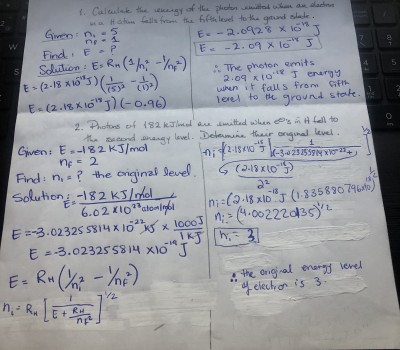 1. Calculate the energy of the photon emitted when an electron
in a H atom falls from the fifth level to the ground state.
Given: ni = 5
nf = 1
Find: E = ?
Solution: E = RH (1/ni² - 1/nf²)
E = (2.18 x10⁻¹⁸ J) (1/(5)² - 1/(1)²)
E = (2.18 x10⁻¹⁸ J) (-0.96)
E = -2.0928 x 10⁻¹⁸ J
E = -2.09 x10⁻¹⁸ J
∴ The photon emits
2.09 x10⁻¹⁸ J energy
when it falls from fifth
level to the ground state.
2. Photons of 182 KJ/mol are emitted when e⊖'s in H fall to
the second energy level. Determine their original level.
Given: E = -182 KJ/mol
nf = 2
Find: ni = ? the original level.
Solution: E = -182 KJ/mol / 6.02 x10²³ atom/mol
E = -3.023255814 x10⁻²² KJ x 1000J / 1 KJ
E = -3.023255814 x10⁻¹⁹ J
E = RH (1/ni² - 1/nf²)
ni = RH [1 / E + RH/nf²]^1/2
ni = (2.18 x10⁻¹⁸ J) [1 / (-3.023255814 x10⁻²²)
(2.18 x10⁻¹⁸ J) / 2² ]^1/2
ni = (2.18 x10⁻¹⁸ J) (1.835880796 x10
ni = (4.002220135)^1/2
ni = 3
∴ the original energy level
of electron is 3.